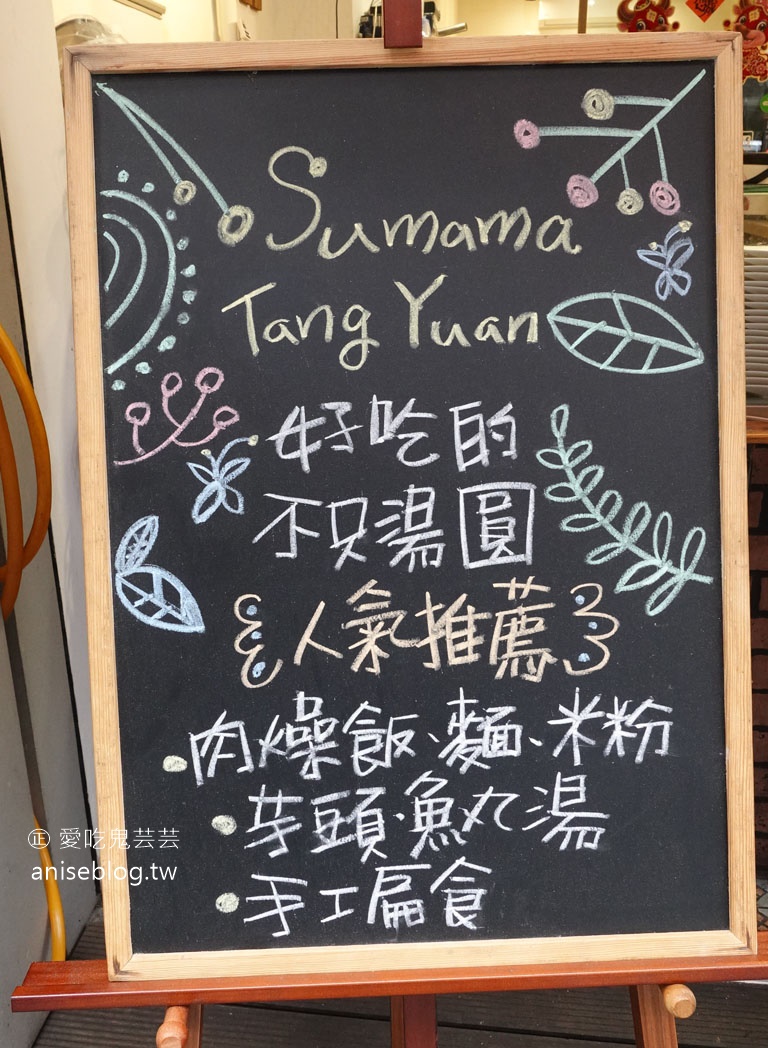 Sumama
Tang Yuan
好吃的
不只湯圓
人氣推薦
肉燥飯、麵、米粉
芋頭·魚丸湯
手工扁食
㊣ 愛吃鬼芸芸
aniseblog.tw